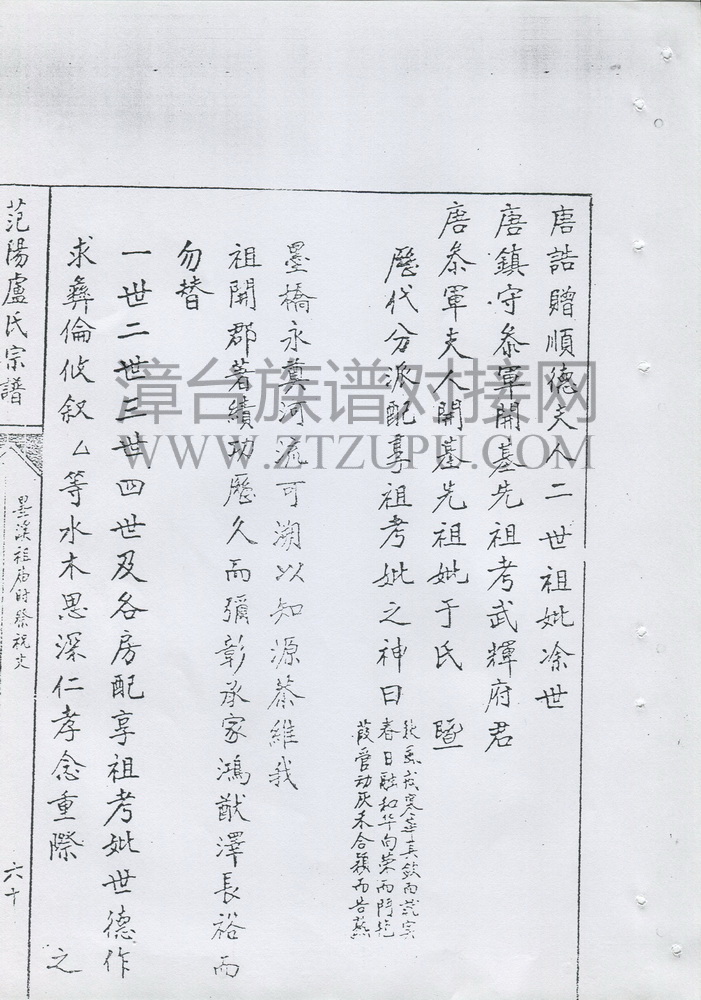 唐誥贈順德夫人二世祖妣凃世
唐鎮守叅軍開基先祖考武輝府君
唐叅軍夫人開基先祖妣于氏 暨
歷代分派配享祖考妣之神曰
春日融和华向荣而鬥艳
葭管动灰禾合穎而告
墨橋永奠河流可溯以知源恭維我
祖開郡著績功歷久而彌彰承家鴻猷澤長裕而
勿替
一世二世三世四世及各房配享祖考妣世德作
求彝倫攸叙厶等水木思深仁孝念重際 之
范陽盧氏宗譜
墨溪祖庙时祭祝文
六十
漳台族谱对接网
WWW.ZTZUPU.COM